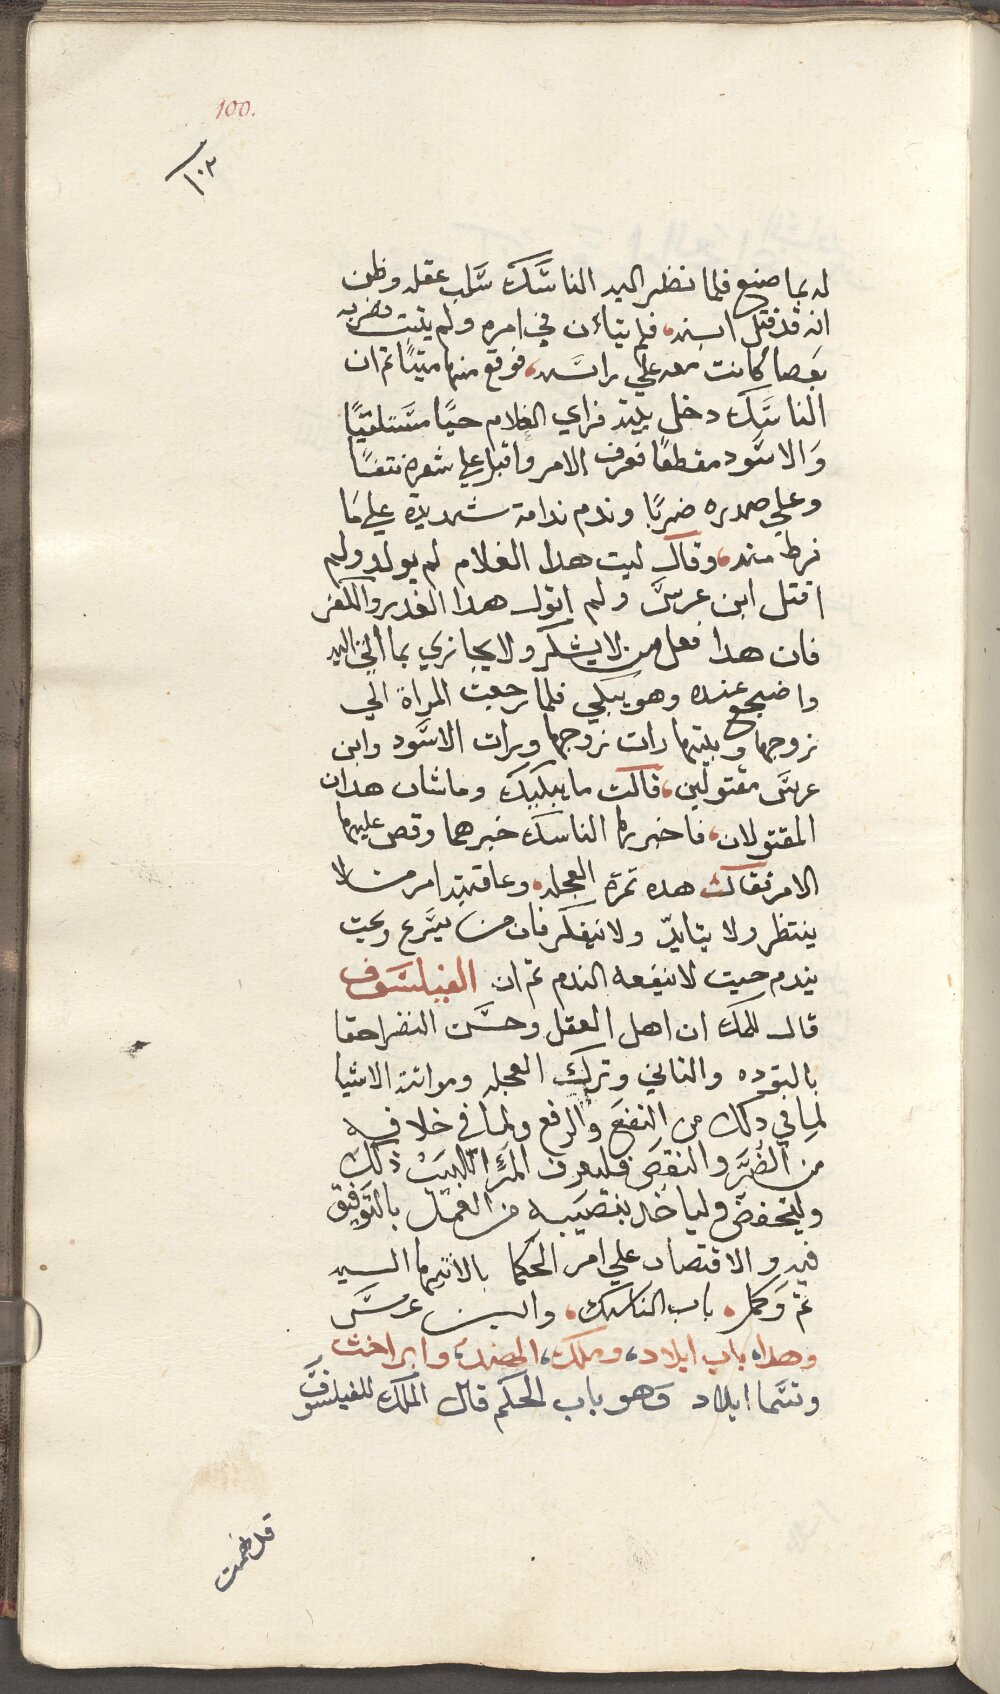 100.
١٠٣
له بما صنع فلما نظر اليه الناسك سلب عقله وظن
انه قد قتل ابنه، فلم يتان في امره ولم يتبت فضربه
بعصا كانت معه علي راسه، فوقع منها ميتًا تم ان
الناسك دخل بيته فراي الغلام حيًا مستلقيًا
والاسود مقطعًا فعرف الامر واقبل علي شعره نتفًا
وعلي صدره ضربًا وندم ندامة شديدة علي ما
فرط منه، وقال ليت هدا الغلام لم يولد ولم
اقتل ابن عرس ولم اتول هدا الغدر والكفر
فان هدا فعل من لا يشكر ولا يجازي بما اتي اليه
واضجع عنده وهو يبكي فلما رجعت المراة الي
زوجها وبيتها رات زوجها ورات الاسود وابن
عرس مقتولين، قالت ما يبكيك وما شان هدان
المقتولان، فاخبرها الناسك خبرهما وقص عليها
الامر فقالت هده تمرة العجله، وعاقبة امر من لا
ينتظر ولا يتايد ولا يتفكر فان من يسرع ويحت
يندم حيت لا ينفعه الندم تم ان الفيلسوف
قال للملك ان اهل العقل وحسن النضر احقا
بالتوده والتاني وترك العجله ومواتة الاشيا
لما في دلك من النفع والرفع ولما في خلافه
من الضر والنقص فليعرف المرء اللبيب ذلك
وليتحفض ولياخد بنصيبه من العمل بالتوفيق
فيه والاقتصاد علي امر الحكما بالانتها اليه
تم وكمل، باب الناسك، وابن عرس
وهدا، باب ايلاد، وملك، الهند، وايراخت
وتسما ايلاد وهو باب الحكم قال الملك للفيلسوف
قد فهمت